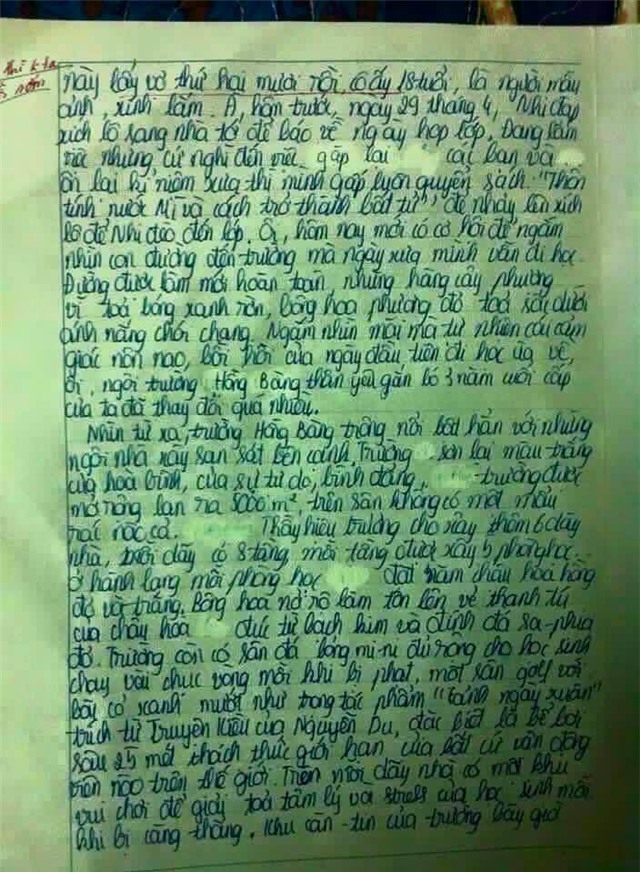 này lấy vợ thứ hai mươi rồi, cô ấy 18 tuổi, là người mẫu
ảnh, xinh lắm. À, hôm trước, ngày 29 tháng 4, Nhi đạp
xích lô sang nhà tớ để báo về ngày họp lớp, Đang làm
việc nhưng cứ nghĩ đến việc gặp lại các bạn và
ôn lại kỷ niệm xưa thì mình gấp luôn quyển sách "Thôn
tính nước Mĩ và cách trở thành bất tử", để nhảy lên xích
lô để Nhi đèo đến lớp. Ôi, hôm nay mới có cơ hội để ngắm
nhìn con đường đến trường mà ngày xưa mình vẫn đi học.
Đường được làm mới hoàn toàn, những hàng cây phượng
vĩ toả bóng xanh rờn, bông hoa phượng đỏ toả sắc dưới
ánh nắng chói chang. Ngắm nhìn mãi mà tự nhiên cái cảm
giác nôn nao, bồi hồi của ngày đầu tiên đi học ùa về,
ôi, ngôi trường Hồng Bàng thân yêu gắn bó 3 năm cuối cấp
của ta đã thay đổi quá nhiều.
Nhìn từ xa, trường Hồng Bàng trông nổi bật hẳn với những
ngôi nhà xây san sát bên cạnh. Trường sơn lại màu trắng
của hoà bình, của sự tự do, bình đẳng, trường được
mở rộng lan ra 5000 m², trên sân không có một mẩu
rác nào cả. Thầy hiệu trưởng cho xây thêm 6 dãy
nhà, mỗi dãy có 8 tầng, mỗi tầng được xây 5 phòng học.
ở hành lang mỗi phòng học đặt năm chậu hoa hồng
đỏ và trắng. Bông hoa nở rộ làm tôn lên vẻ thanh tú
của chậu hoa đúc từ bạch kim và đính đá sa-phia
đỏ. Trường còn có sân đá bóng mi-ni đủ rộng cho học sinh
chạy vài chục vòng mỗi khi bị phạt, một sân golf với
bãi cỏ xanh mướt như trong tác phẩm "Cảnh ngày xuân"
trích từ Truyện Kiều của Nguyễn Du, đặc biệt là bể bơi
sâu 25 mét thách thức giới hạn của bất cứ vận động
viên nào trên thế giới. Trên mỗi dãy nhà có một khu
vui chơi để giải toả tâm lý và stress của học sinh mỗi
khi bị căng thẳng. Khu căn-tin của trường bây giờ